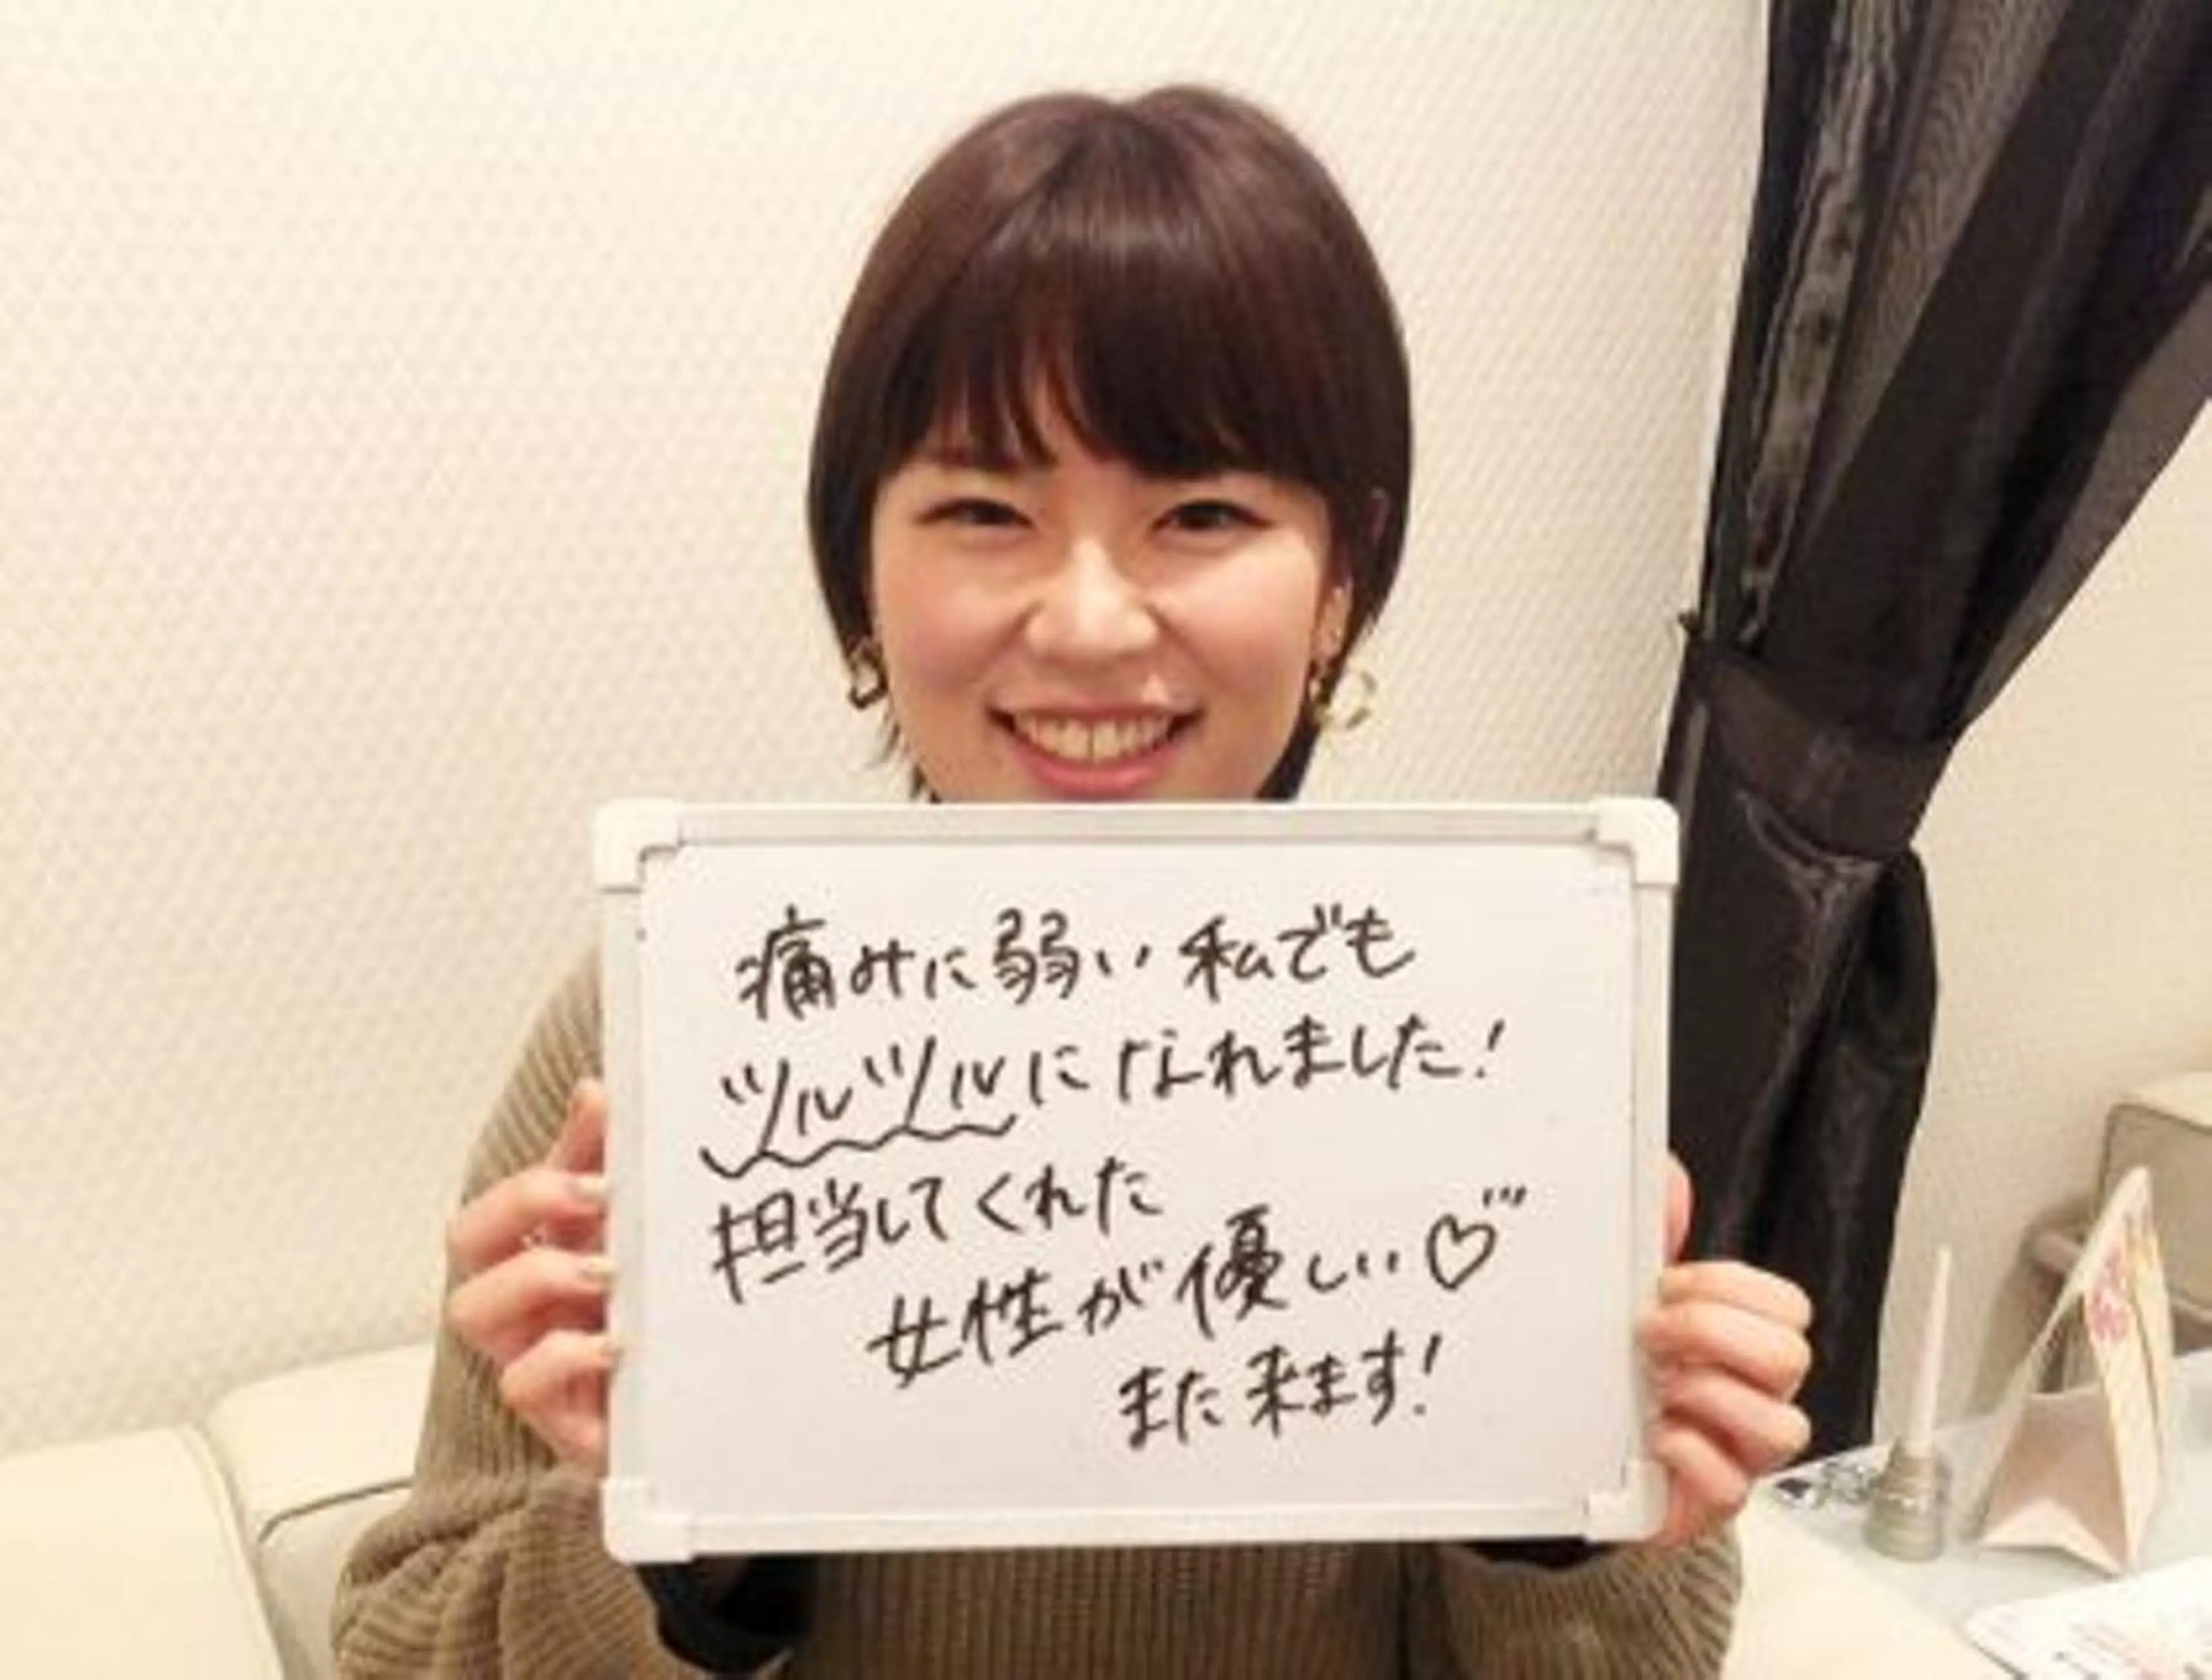 痛みに弱い私でも
ツルツルになれました!
担当してくれた
女性が優しい♡
また来ます!